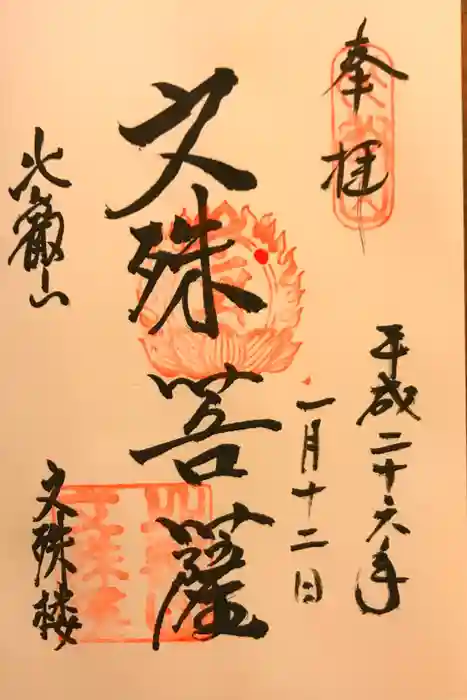 奉拝
平成二十六年
一月十二日
文殊菩薩
比叡山
文殊楼